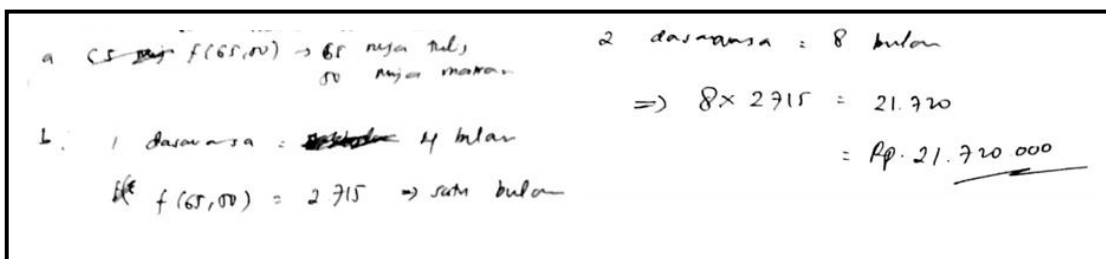 a f(65,50) → 65 meja tulis
50 meja makan
b. 1 dasawarsa = 4 bulan
f(65,50) = 2715 ⇒ satu bulan
2 dasawarsa = 8 bulan
⇒ 8 × 2715 = 21.720
= Rp. 21.720 000